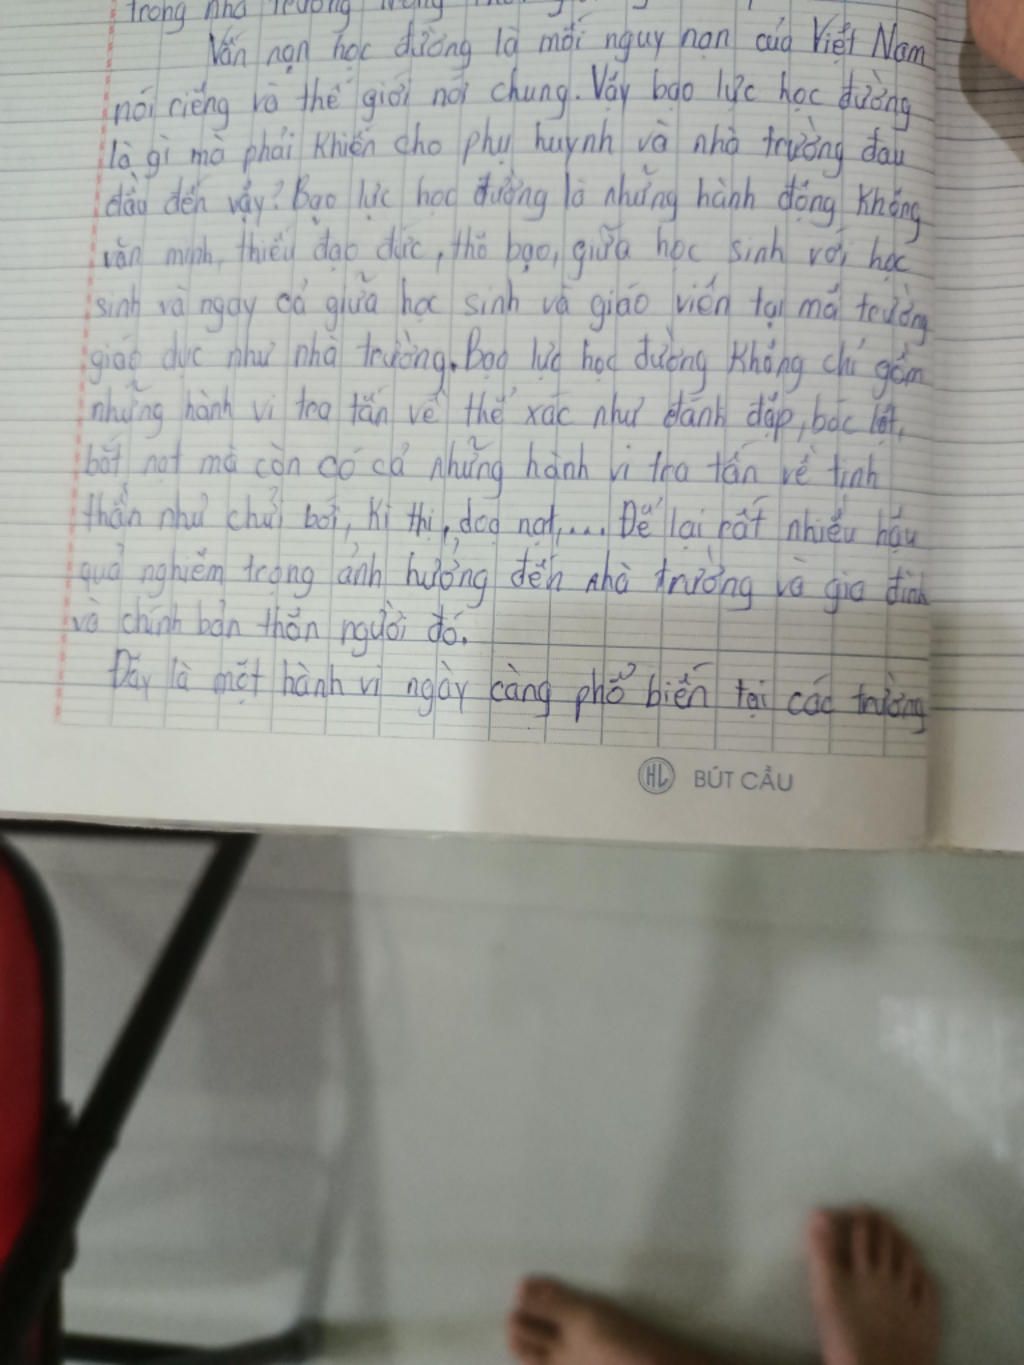 trong nhà trường
Vấn nạn học đường là mối nguy nan của Việt Nam
nói riêng và thế giới nói chung. Vậy bạo lực học đường
là gì mà phải khiến cho phụ huynh và nhà trường đau
đầu đến vậy? Bạo lực học đường là những hành động không
văn minh, thiếu đạo đức, thô bạo, giữa học sinh với học
sinh và ngay cả giữa học sinh và giáo viên tại mái trường
giáo dục như nhà trường. Bạo lực học đường không chỉ gồm
những hành vi tra tấn về thể xác như đánh đập, bóc lột,
bắt nạt mà còn có cả những hành vi tra tấn về tinh
thần như chửi bới, kì thị, dọa nạt,... Để lại rất nhiều hậu
quả nghiêm trọng ảnh hưởng đến nhà trường và gia đình
và chính bản thân người đó.
Đây là một hành vi ngày càng phổ biến tại các trường
HL BÚT CẦU